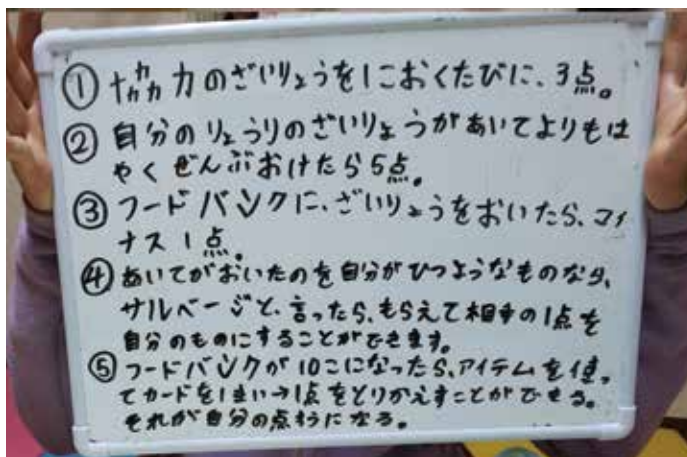 ①協力のざいりょうを1におくたびに、3点。
②自分のりょうりのざいりょうがあいてよりもは
やくぜんぶおけたら5点。
③フードバンクに、ざいりょうをおいたら、マイ
ナス1点。
④あいてがおいたのを自分がひつようなものなら、
サルベージと、言ったら、もらえて相手の1点を
自分のものにすることができます。
⑤フードバンクが10こになったら、アイテムを使っ
てカードを1まい→1点をとりかえすことができる。
それが自分の点すうになる。